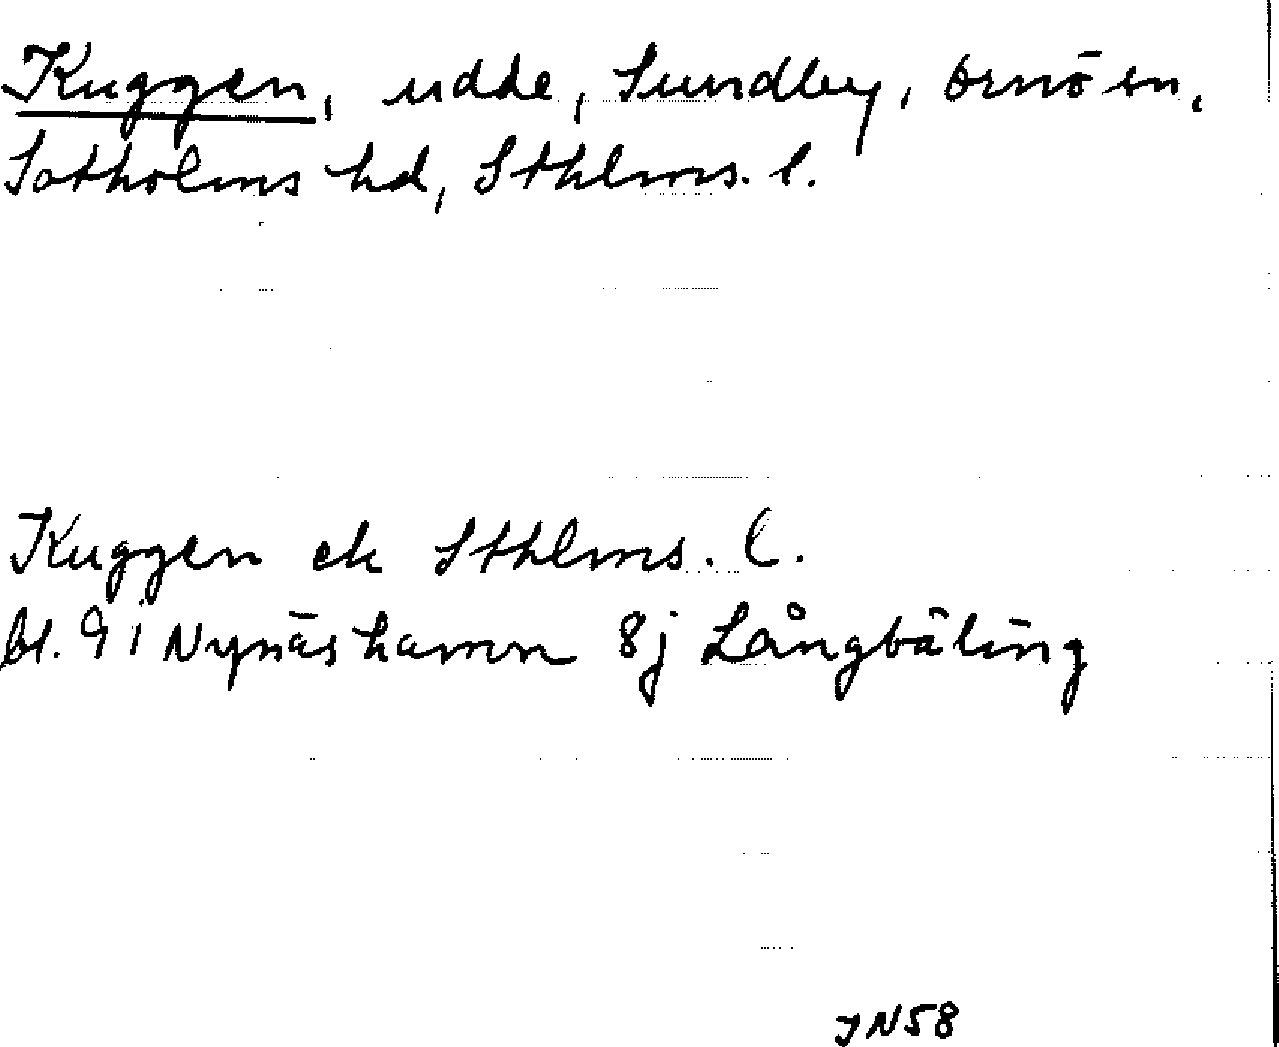 Kuggen, udde, Sundby, Ornö sn,
Sotholms hd, Sthlms. l.
Kuggen ek Sthlms. l.
bl. 9 i Nynäshamn 8j Långbäling
JN58